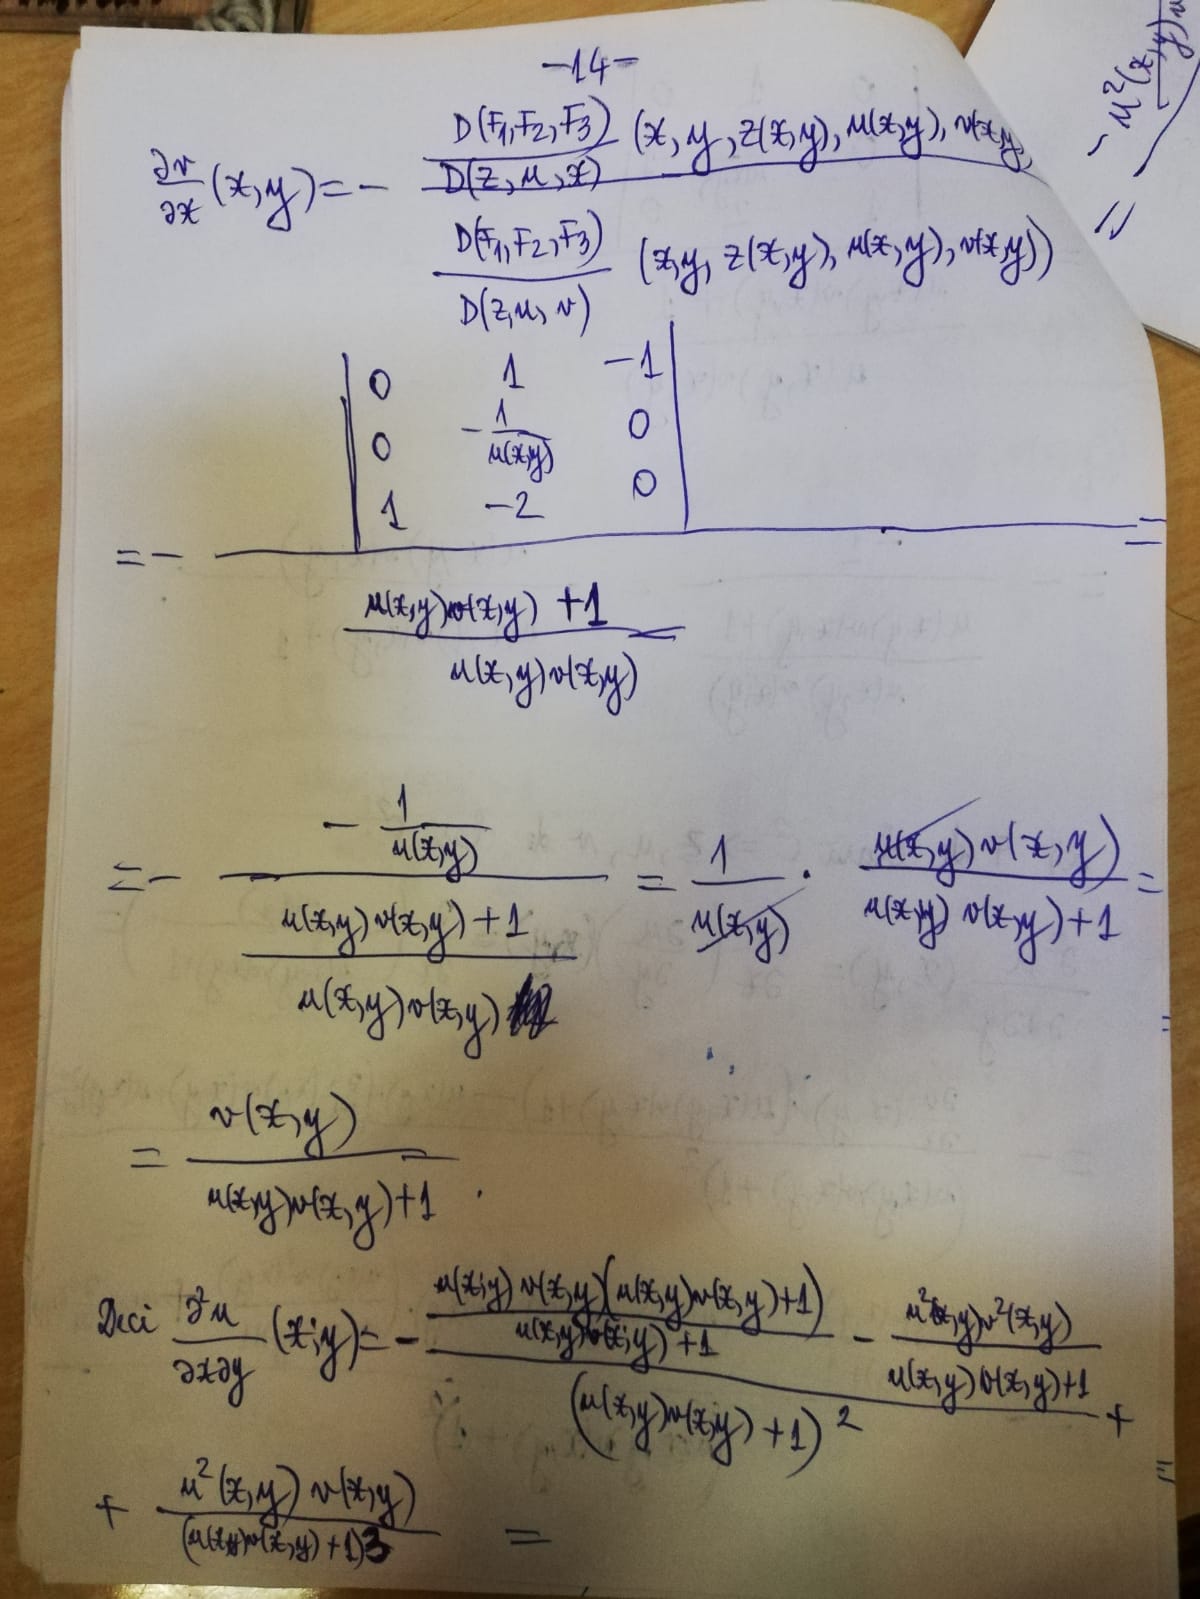 -14-
∂v/∂x (x,y) = - D(F1,F2,F3)/D(z,u,x) (x,y,z(x,y),u(x,y),v(x,y
D(F1,F2,F3)/D(z,u,v) (x,y,z(x,y),u(x,y),v(x,y))
0 1 -1
0 -1/u(x,y) 0
1 -2 0
= - =
u(x,y)v(x,y)+1
u(x,y)v(x,y)
= - (-1/u(x,y))/((u(x,y)v(x,y)+1)/(u(x,y)v(x,y))) = 1/u(x,y) · u(x,y)v(x,y)/(u(x,y)v(x,y)+1) =
= v(x,y)/(u(x,y)v(x,y)+1) .
Deci ∂²u/∂x∂y (x;y) = - (u(x;y)v(x,y)(u(x,y)v(x,y)+1)/(u(x,y)v(x;y)+1) - u²(x,y)v²(x,y)/(u(x,y)v(x,y)+1))/(u(x,y)v(x,y)+1)² +
+ u²(x,y)v(x,y)/(u(x,y)v(x,y)+1)3 =
= - u²(x,y)v